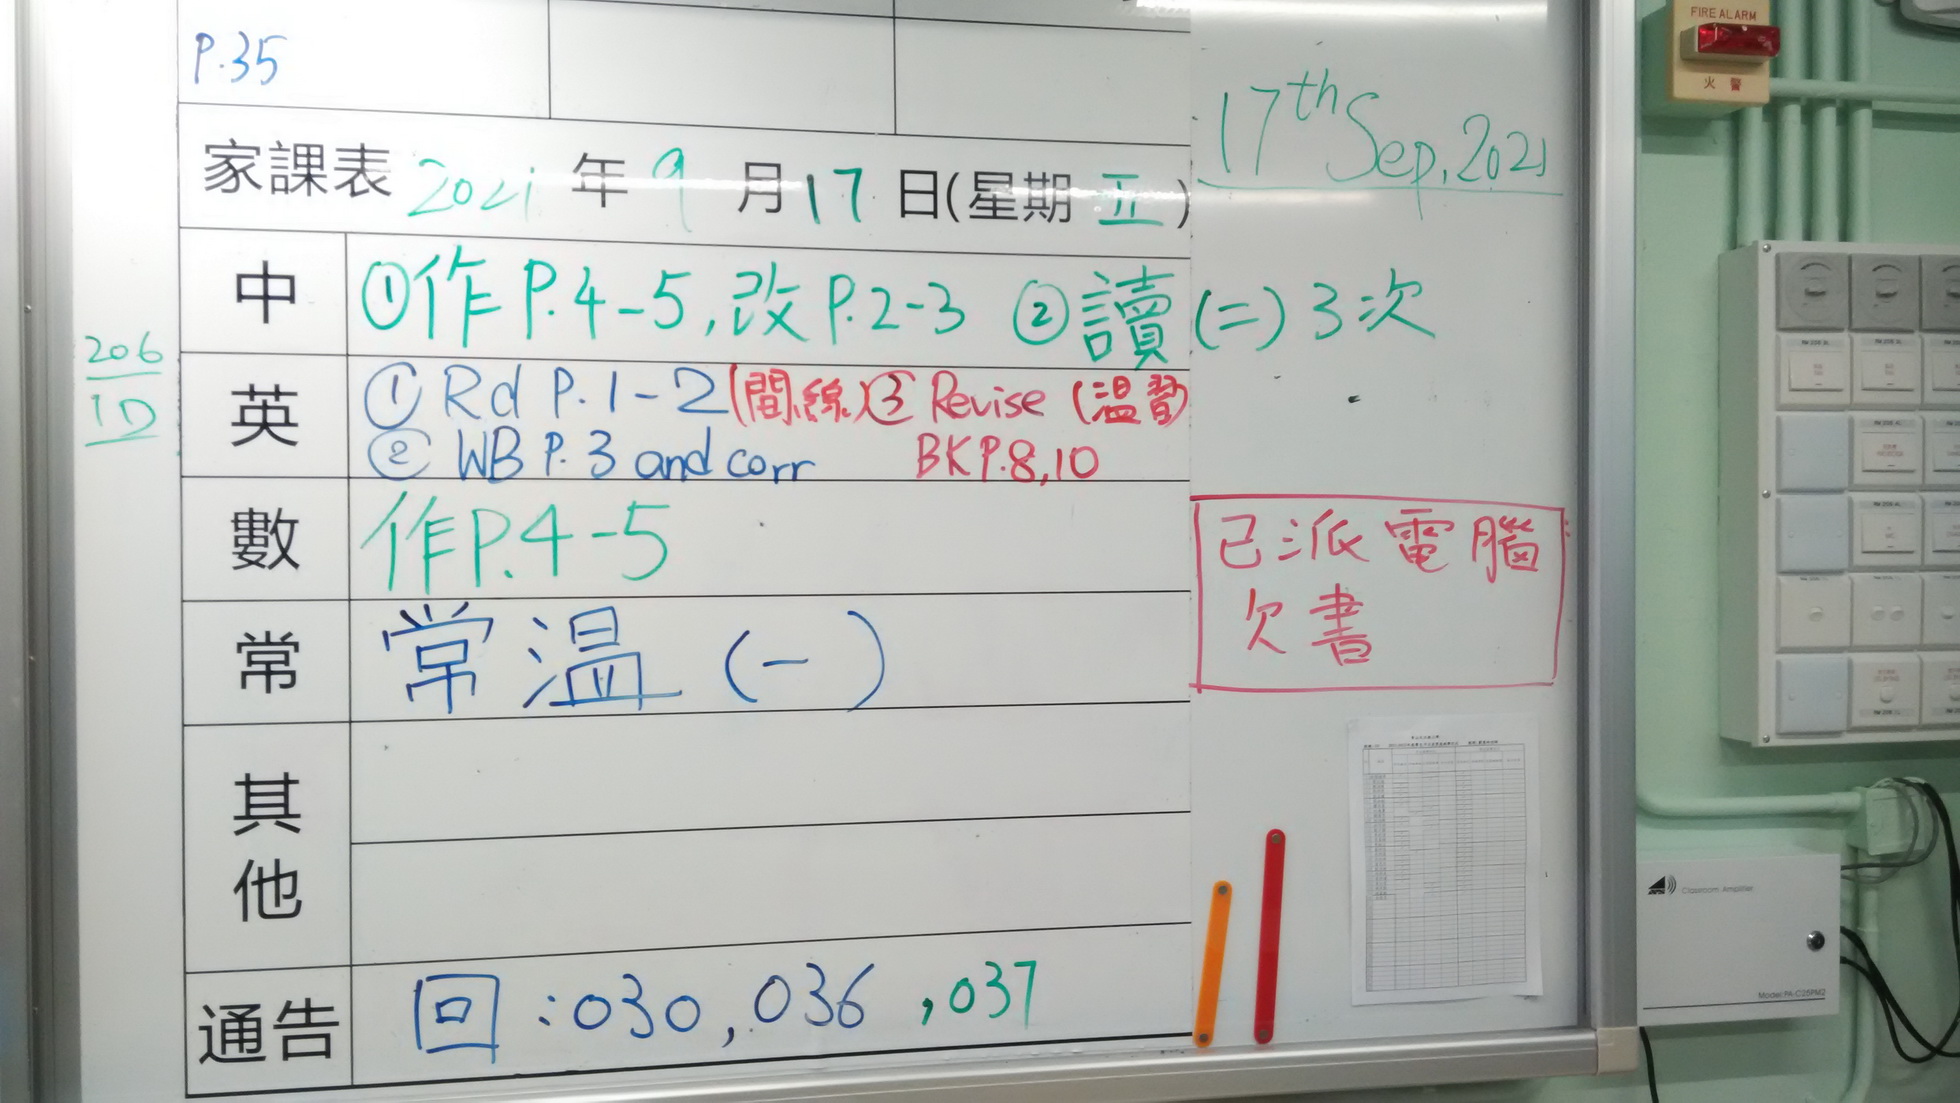 P.35
家課表 2021 年 9 月 17 日(星期 五)
17th Sep, 2021
中 ①作P.4-5,改P.2-3 ②讀(二)3次
206
1D
英 ① Rd P.1-2(間線)③ Revise (溫習)
② WB P.3 and corr BK P.8,10
數 作P.4-5
已派電腦
欠書
常 常溫(一)
其他
通告 回:030,036,037
FIRE ALARM
火警
Classroom Amplifier
Model:PA-C25PM2